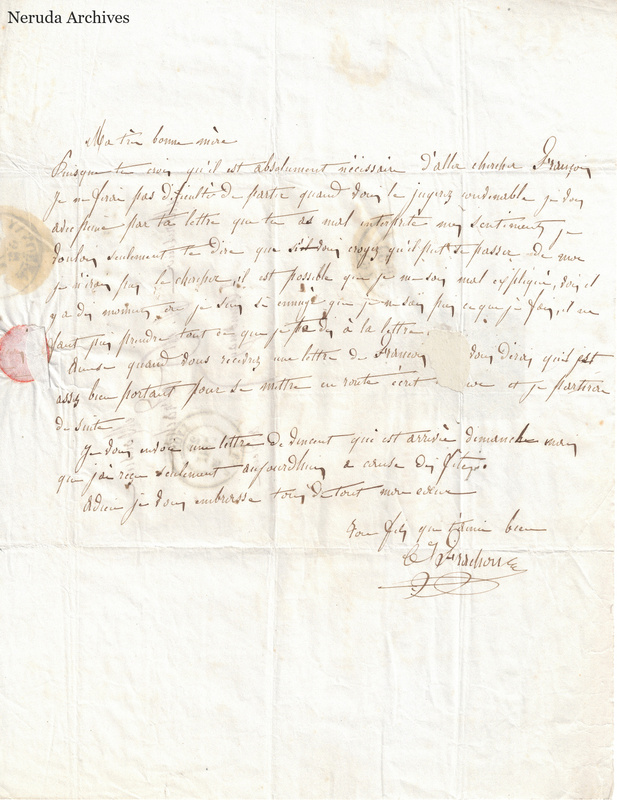 Neruda Archives
Ma très bonne mère
Puisque tu crois qu'il est absolument nécessaire d'aller chercher François
Je ne ferai pas difficulté de partir quand vous le jugerez convenable je vois
avec peine par ta lettre que tu as mal interprété mes sentiments, je
voulois seulement te dire que si vous croyez qu'il put se passer de moi
je n'irois pas le chercher, il est possible que je me sois mal expliqué, vois il
y a des moments où je suis si ennuyé que je ne sais pas ce que je fais, il ne
faut pas prendre tout ce que je te dis à la lettre.
Ainsi quand vous recevrez une lettre de François vous dirai qu'il est
assez bien portant pour se mettre en route écrit et je partirai
de suite
Je vous envoie une lettre de Vincent qui est arrivée dimanche mais
que j'ai reçue seulement aujourdhui a cause des fêtes.
Adieu je vous embrasse tous de tout mon cœur
ton fils qui t'aime bien